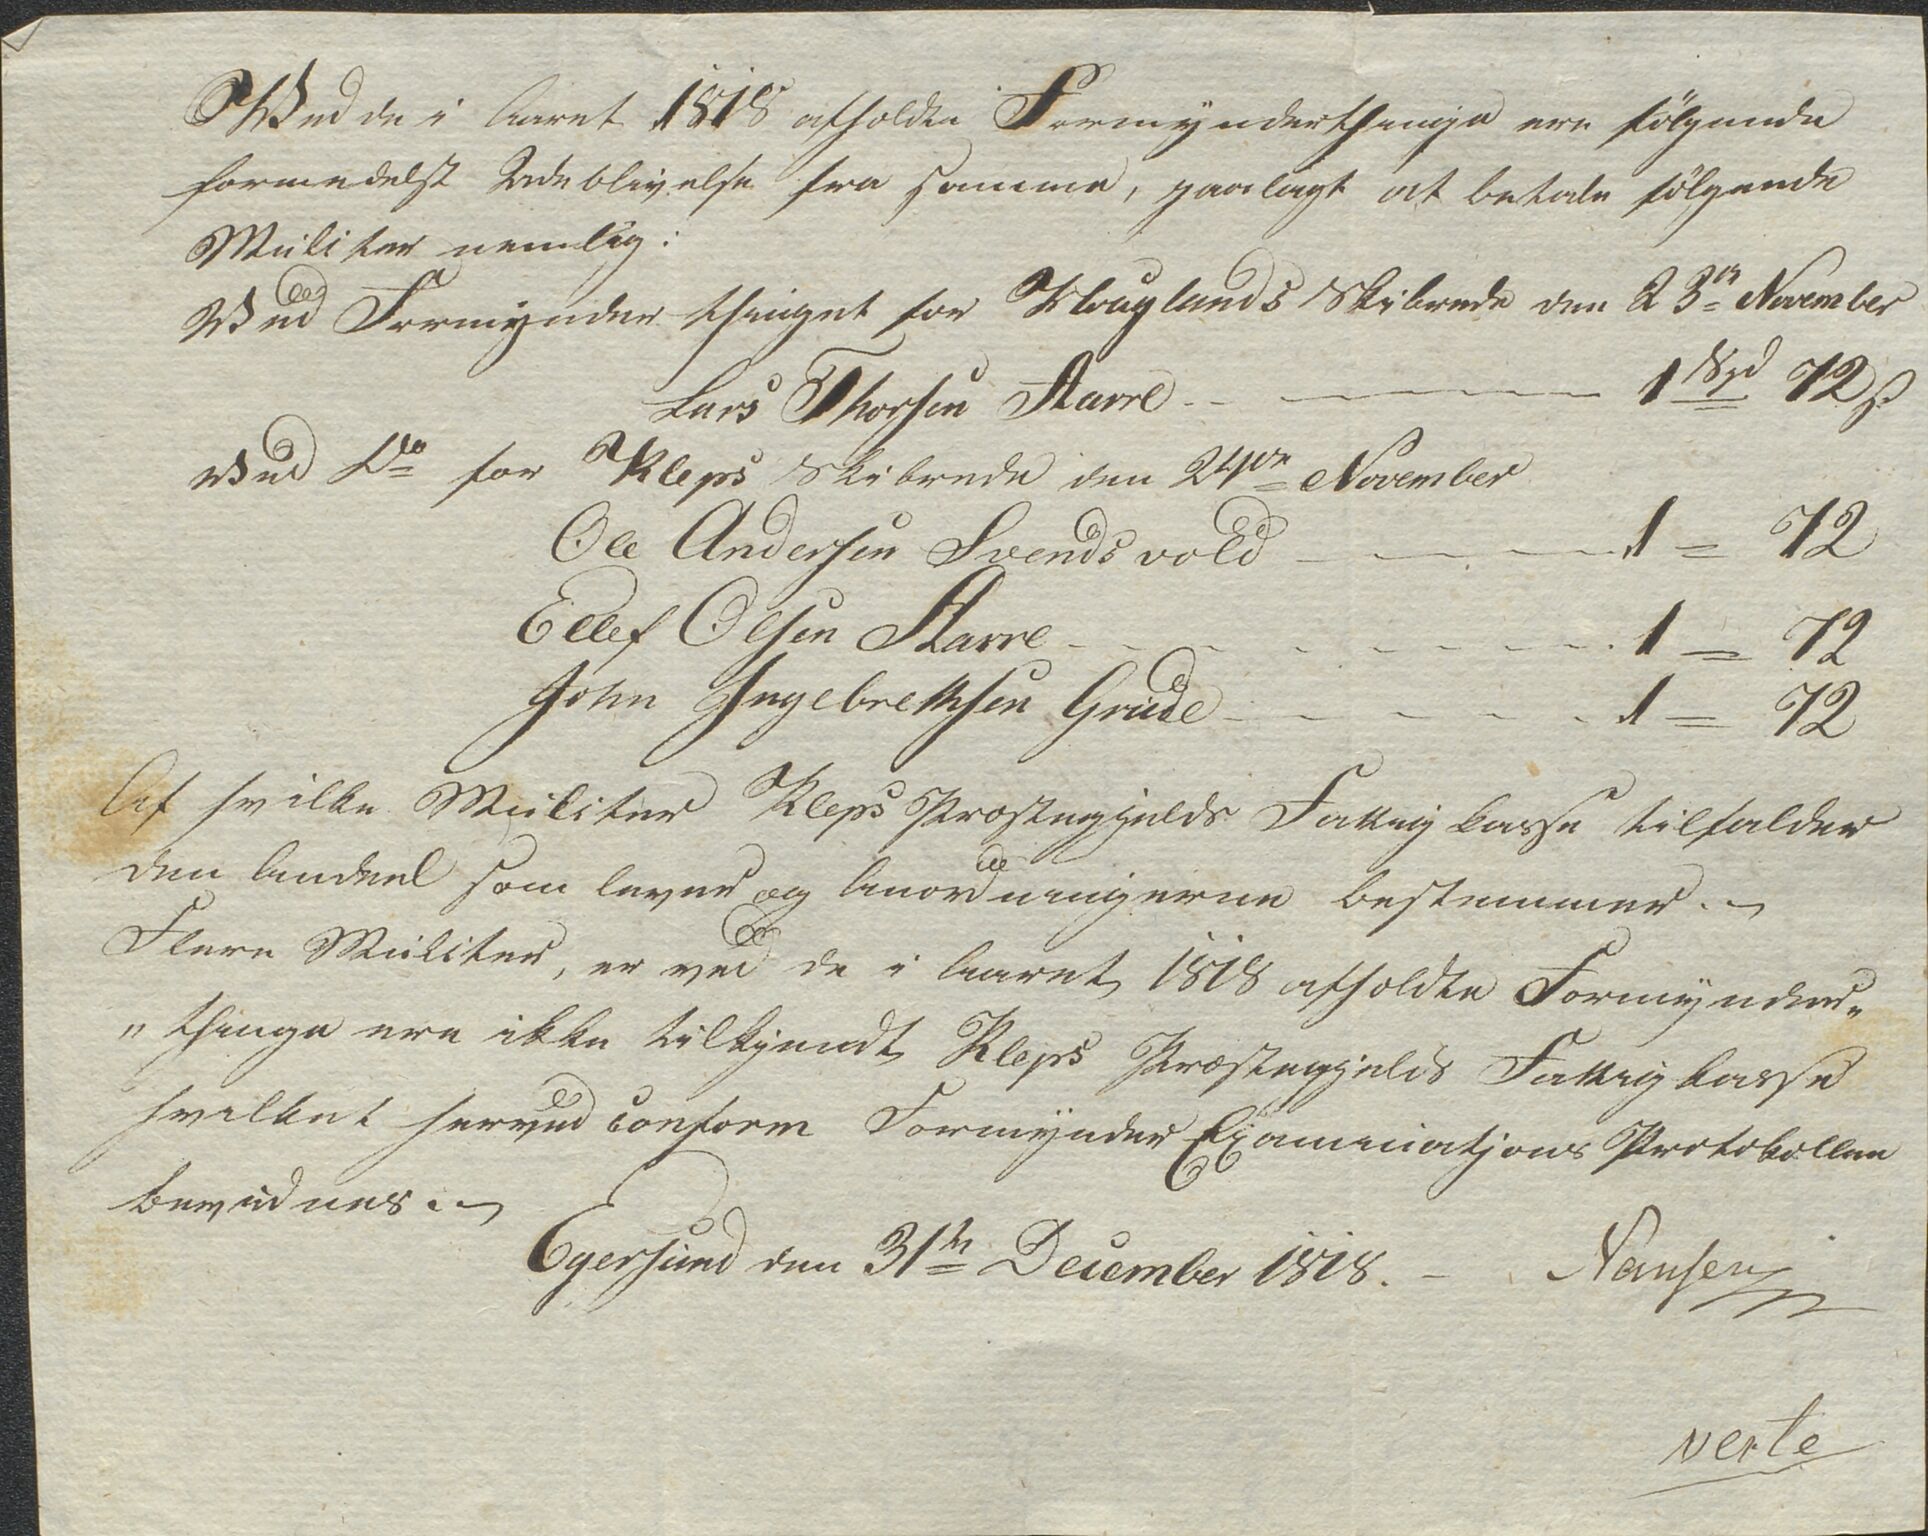 Ved de i Aaret 1818 afholdte Formynderthinge ere følgende
formedelst Udeblivelse fra samme, paalagt at betale følgende
Mulcter nemlig:
Ved Formynder thinget for Houglands Skibrede den 23de November
Lars Thorsen Harre - - 1 Spd 72 s
Ved Do for Kleps Skibrede den 24de November
Ole Andersen Svendsvold - - - - 1 = 72
Ellef Olsen Harre - - - - 1 = 72
John Ingebrethsen Grude - - - - 1 = 72
Af hvilke Mulcter Kleps Præstegjelds Fattig kasse tilfalder
den Andeel som lover og Anordningerne bestemmer. -
Flere Mulcter, er ved de i Aaret 1818 afholdte Formynder„
„thinge ere ikke tilkjendt Kleps Præstegjelds Fattigkasse
hvilket herved conform Formynder Examinatjons Protokollen
bevidnes. -
Egersund den 31te December 1818. - Nansen
verte